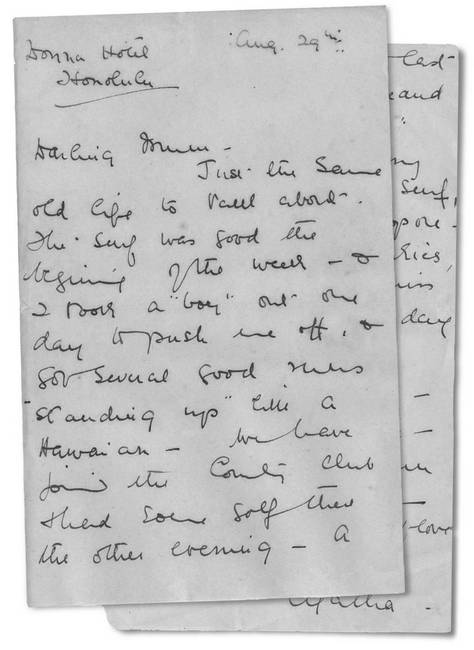 Donna Hotel
Honolulu
Aug. 29th
Darling Mum -
Just the same
old life to tell about.
The surf was good the
begining of the week - &
I took a "boy" out one
day to push me off, &
got several good runs
"standing up" like a
Hawaian - We have
joined the Country Club
& had some golf there
the other evening - A
last
and
Surf,
day
love
Agatha.